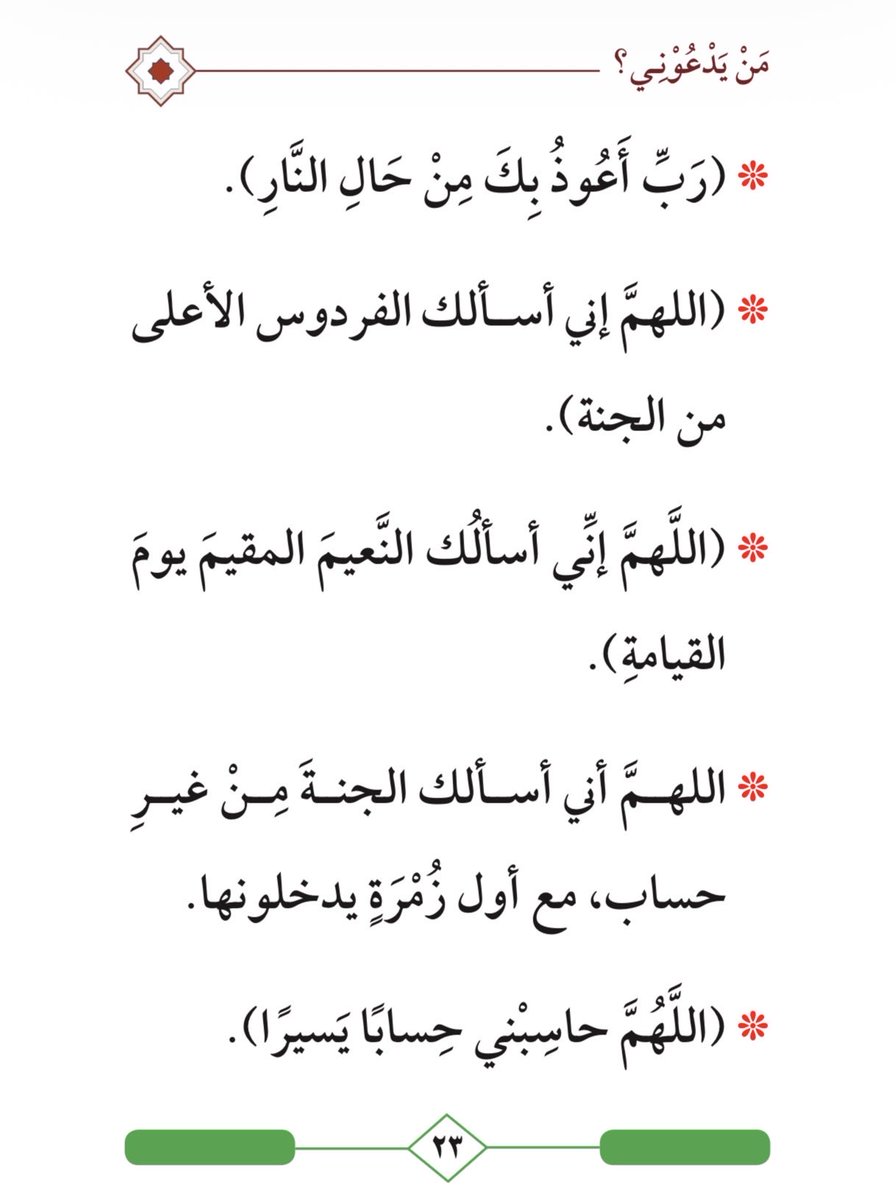 مَنْ يَدْعُوْنِي؟
(رَبِّ أَعُوذُ بِكَ مِنْ حَالِ النَّارِ).
(اللهمَّ إني أسألك الفردوس الأعلى
من الجنة).
(اللَّهمَّ إنِّي أسألُك النَّعيمَ المقيمَ يومَ
القيامةِ).
اللهمَّ أني أسألك الجنةَ مِنْ غيرِ
حساب، مع أول زُمْرَةٍ يدخلونها.
(اللَّهُمَّ حاسِبْني حِسابًا يَسيرًا).
٢٣